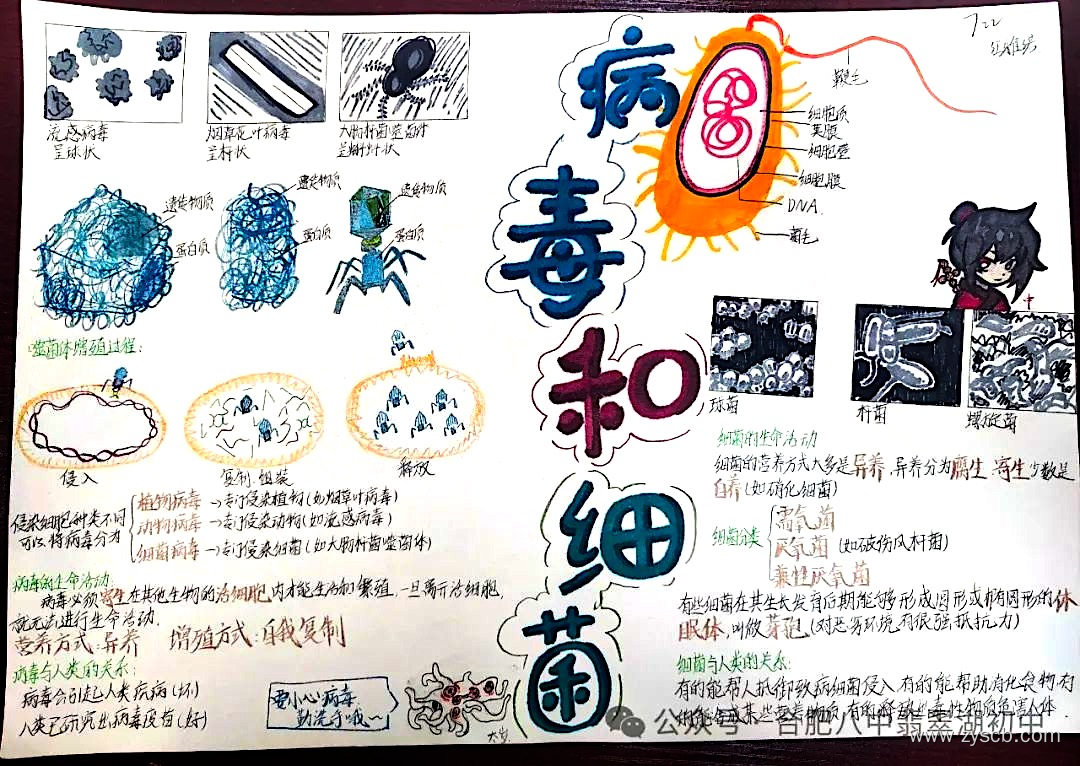 病毒和细菌
722
流感病毒
呈球状
烟草花叶病毒
呈杆状
大肠杆菌噬菌体
呈蝌蚪状
遗传物质
蛋白质
遗传物质
蛋白质
遗传物质
蛋白质
噬菌体增殖过程:
侵入
复制、组装
释放
侵染细胞种类不同
可以将病毒分为
植物病毒→专门侵染植物(如烟草叶病毒)
动物病毒→专门侵染动物(如流感病毒)
细菌病毒→专门侵染细菌(如大肠杆菌噬菌体)
病毒的生命活动:
病毒必须寄生在其他生物的活细胞内才能生活和繁殖,一旦离开活细胞,
就无法进行生命活动.
营养方式:异养 增殖方式:自我复制
病毒与人类的关系:
病毒会引起人类疾病(坏)
人类已研究出病毒疫苗(好)
要小心病毒
勤洗手哦~
鞭毛
细胞质
荚膜
细胞壁
细胞膜
DNA.
菌毛
球菌
杆菌
螺旋菌
细菌的生命活动
细菌的营养方式大多是异养,异养分为腐生、寄生少数是
自养(如硝化细菌)
细菌分类
需氧菌
厌氧菌(如破伤风杆菌)
兼性厌氧菌
有些细菌在其生长发育后期能够形成圆形或椭圆形的休
眠体,叫做芽孢(对恶劣环境有很强抵抗力)
细菌与人类的关系:
有的能帮人抵御致病细菌侵入,有的能帮助消化食物,有
的能合成某些营养物质,有的释放出毒性物质危害人体.
公众号 合肥八中翡翠湖初中
www.zyscb.com